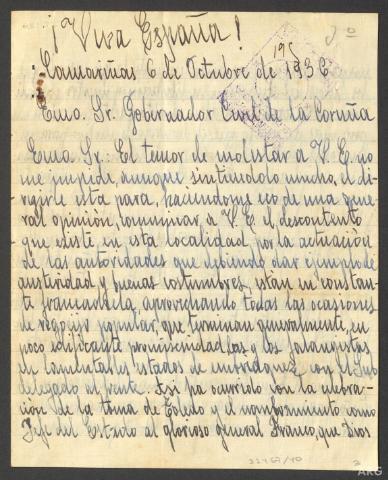 ¡Viva España!
Camariñas 6 de Octubre de 1936
Excmo. Sr. Gobernador Civil de la Coruña
Excmo. Sr: El temor de molestar a V. E. no
me impide, aunque sintiéndolo mucho, el di-
rigirle esta para, haciendome eco de una gene-
ral opinión, comunicar a V. E. el descontento
que existe en esta localidad, por la actuación
de las autoridades que debiendo dar ejemplo de
austeridad y buenas costumbres, están en constan-
te francachela, aprovechando todas las ocasiones
de regocijo popular, que terminan generalmente, en
poco edificante promiscuidad, los falangistas
de lamentables estados de embriaguez, con el Sub
delegado al frente. Así ha ocurrido con la celebra-
ción de la toma de Toledo y el nombramiento como
Jefe del Estado al glorioso general Franco, que Dios
ARG